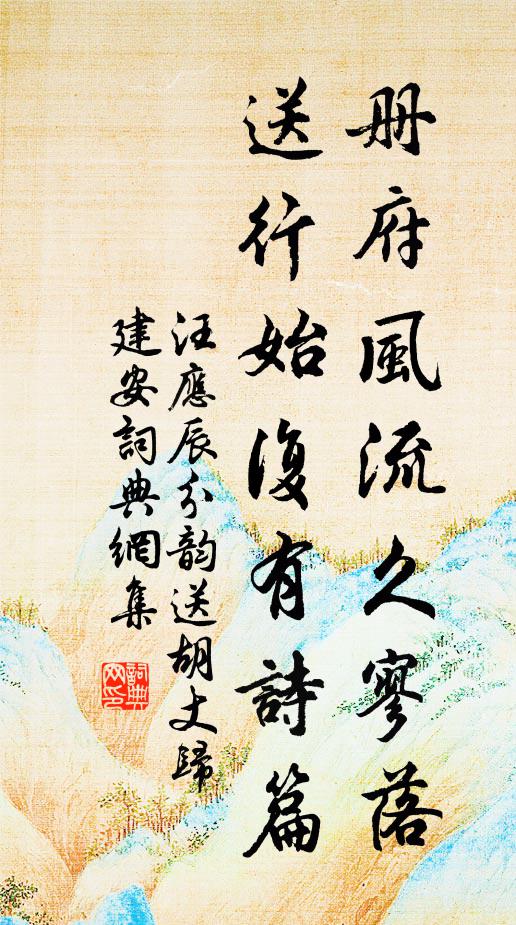 册府風流久寥落
送行始復有詩篇
汪應辰分韵送胡丈歸
建安詞典網集
詞典网印